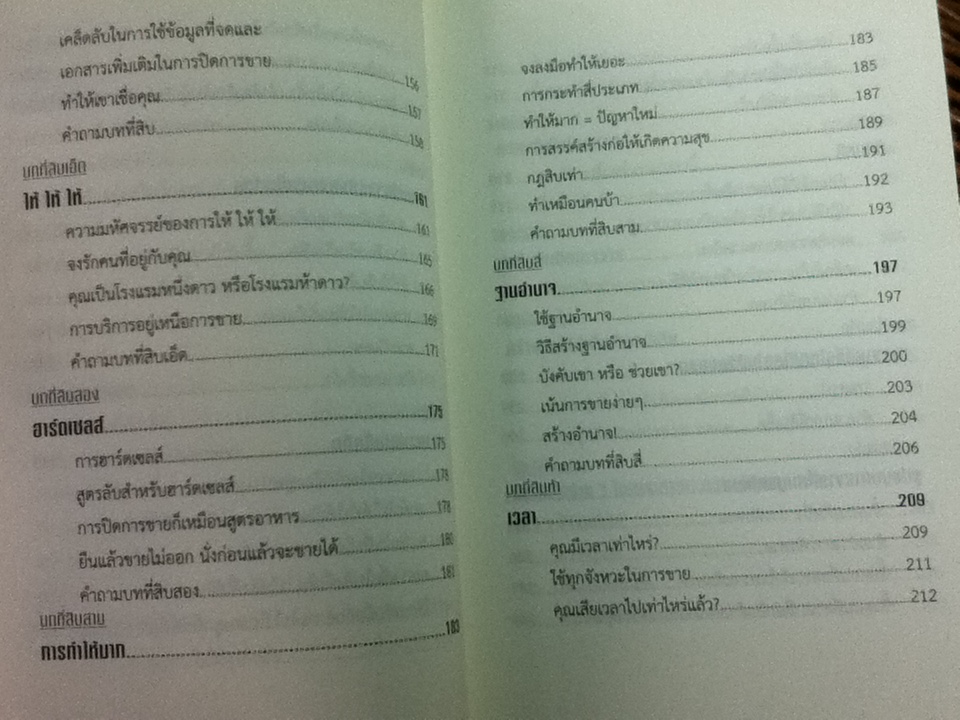 เคล็ดลับในการใช้ข้อมูลที่จดและ
เอกสารเพิ่มเติมในการปิดการขาย 156
ทำให้เขาเชื่อคุณ 157
คำถามบทที่สิบ 158
บทที่สิบเอ็ด
ให้ ให้ ให้ 161
ความมหัศจรรย์ของการให้ ให้ ให้ 161
จงรักคนที่อยู่กับคุณ 165
คุณเป็นโรงแรมหนึ่งดาว หรือโรงแรมห้าดาว? 166
การบริการอยู่เหนือการขาย 169
คำถามบทที่สิบเอ็ด 171
บทที่สิบสอง
ฮาร์ดเซลส์ 175
การฮาร์ดเซลส์ 175
สูตรลับสำหรับฮาร์ดเซลส์ 178
การปิดการขายก็เหมือนสูตรอาหาร 178
ยืนแล้วขายไม่ออก นั่งก่อนแล้วจะขายได้ 180
คำถามบทที่สิบสอง 181
บทที่สิบสาม
การทำให้มาก 183
จงลงมือทำให้เยอะ 183
การกระทำสี่ประเภท 185
ทำให้มาก = ปัญหาใหม่ 187
การสรรค์สร้างก่อให้เกิดความสุข 189
กฎสิบเท่า 191
ทำเหมือนคนบ้า 192
คำถามบทที่สิบสาม 193
บทที่สิบสี่
ฐานอำนาจ 197
ใช้ฐานอำนาจ 197
วิธีสร้างฐานอำนาจ 199
บังคับเขา หรือ ช่วยเขา? 200
เน้นการขายง่ายๆ 203
สร้างอำนาจ! 204
คำถามบทที่สิบสี่ 206
บทที่สิบห้า
เวลา 209
คุณมีเวลาเท่าไหร่? 209
ใช้ทุกจังหวะในการขาย 211
คุณเสียเวลาไปเท่าไหร่แล้ว? 212